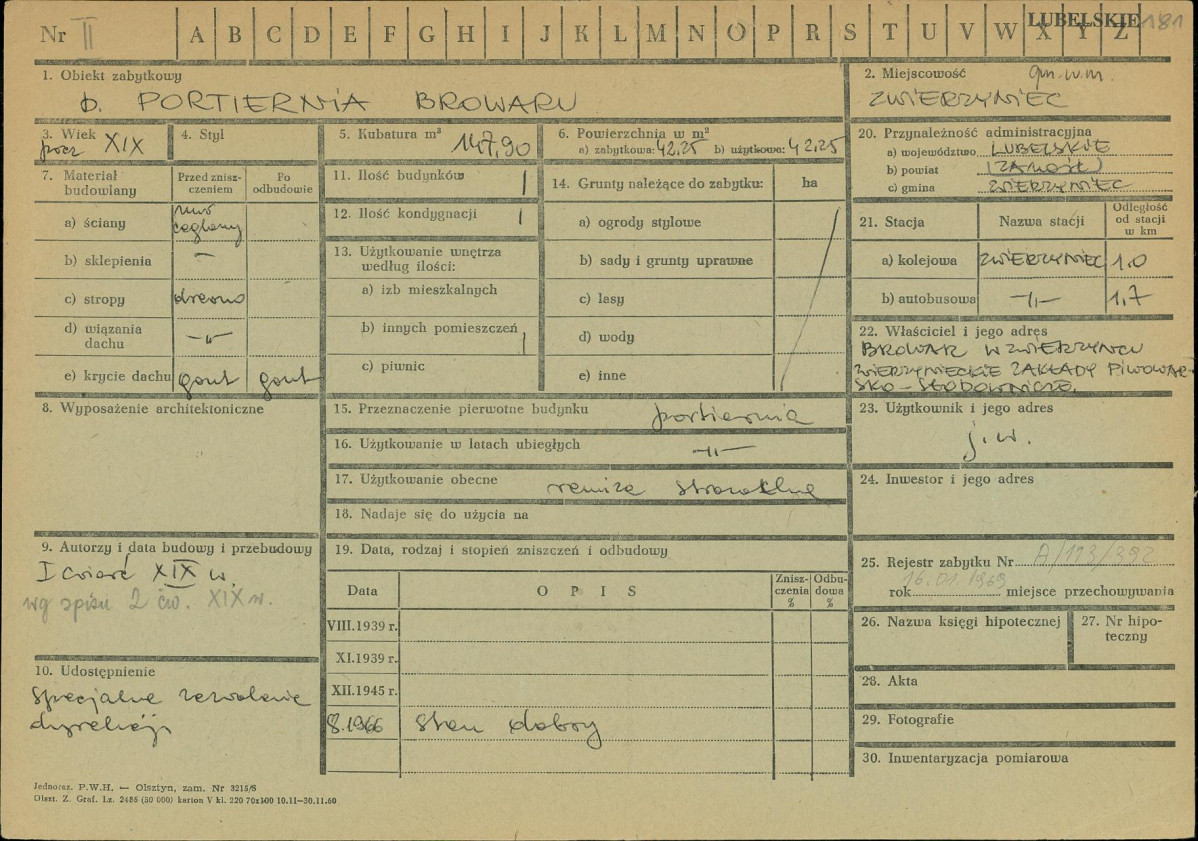 Nr II A B C D E F G H I J K L M N O P R S T U V W X Y Z LUBELSKIE 181
1. Obiekt zabytkowy
b. PORTIERNIA BROWARU
2. Miejscowość gm. w.m.
ZWIERZYNIEC
3. Wiek
pocz XIX
4. Styl
5. Kubatura m³
147,90
6. Powierzchnia w m²
a) zabytkowa: 42,25 b) użytkowa: 42,25
20. Przynależność administracyjna
a) województwo LUBELSKIE
b) powiat (ZAMOŚĆ)
c) gmina ZWIERZYNIEC
7. Materiał budowlany
Przed znisz-
czeniem
Po
odbudowie
a) ściany mur
ceglany
b) sklepienia —
c) stropy drewno
d) wiązania
dachu —„—
e) krycie dachu gont gont
11. Ilość budynków 1
12. Ilość kondygnacji 1
13. Użytkowanie wnętrza
według ilości:
a) izb mieszkalnych
b) innych pomieszczeń 1
c) piwnic
14. Grunty należące do zabytku: ha
a) ogrody stylowe
b) sady i grunty uprawne
c) lasy
d) wody
e) inne
21. Stacja Nazwa stacji
Odległość
od stacji
w km
a) kolejowa ZWIERZYNIEC 1,0
b) autobusowa —„— 1,7
22. Właściciel i jego adres
BROWAR W ZWIERZYŃCU
ZWIERZYNIECKIE ZAKŁADY PIWOWAR-
SKO-SŁODOWNICZE.
8. Wyposażenie architektoniczne
15. Przeznaczenie pierwotne budynku portiernia
16. Użytkowanie w latach ubiegłych —„—
17. Użytkowanie obecne remiza strażacka
18. Nadaje się do użycia na
23. Użytkownik i jego adres
j.w.
24. Inwestor i jego adres
9. Autorzy i data budowy i przebudowy
I ćwierć XIX w.
wg spisu 2 ćw. XIX w.
19. Data, rodzaj i stopień zniszczeń i odbudowy
Data OPIS
Znisz-
czenia
%
Odbu-
dowa
%
VIII.1939 r.
XI.1939 r.
XII.1945 r.
8.1966 Stan dobry
25. Rejestr zabytku Nr A/113/392
rok 16.01.1969 miejsce przechowywania
26. Nazwa księgi hipotecznej
27. Nr hipo-
teczny
10. Udostępnienie
Specjalne zezwolenie
dyrekcji
28. Akta
29. Fotografie
30. Inwentaryzacja pomiarowa
Jednoraz. P.W.H. — Olsztyn, zam. Nr 3215/S
Olszt. Z. Graf. Lz. 2485 (50 000) karton V kl. 220 70x100 10.11—30.11.60